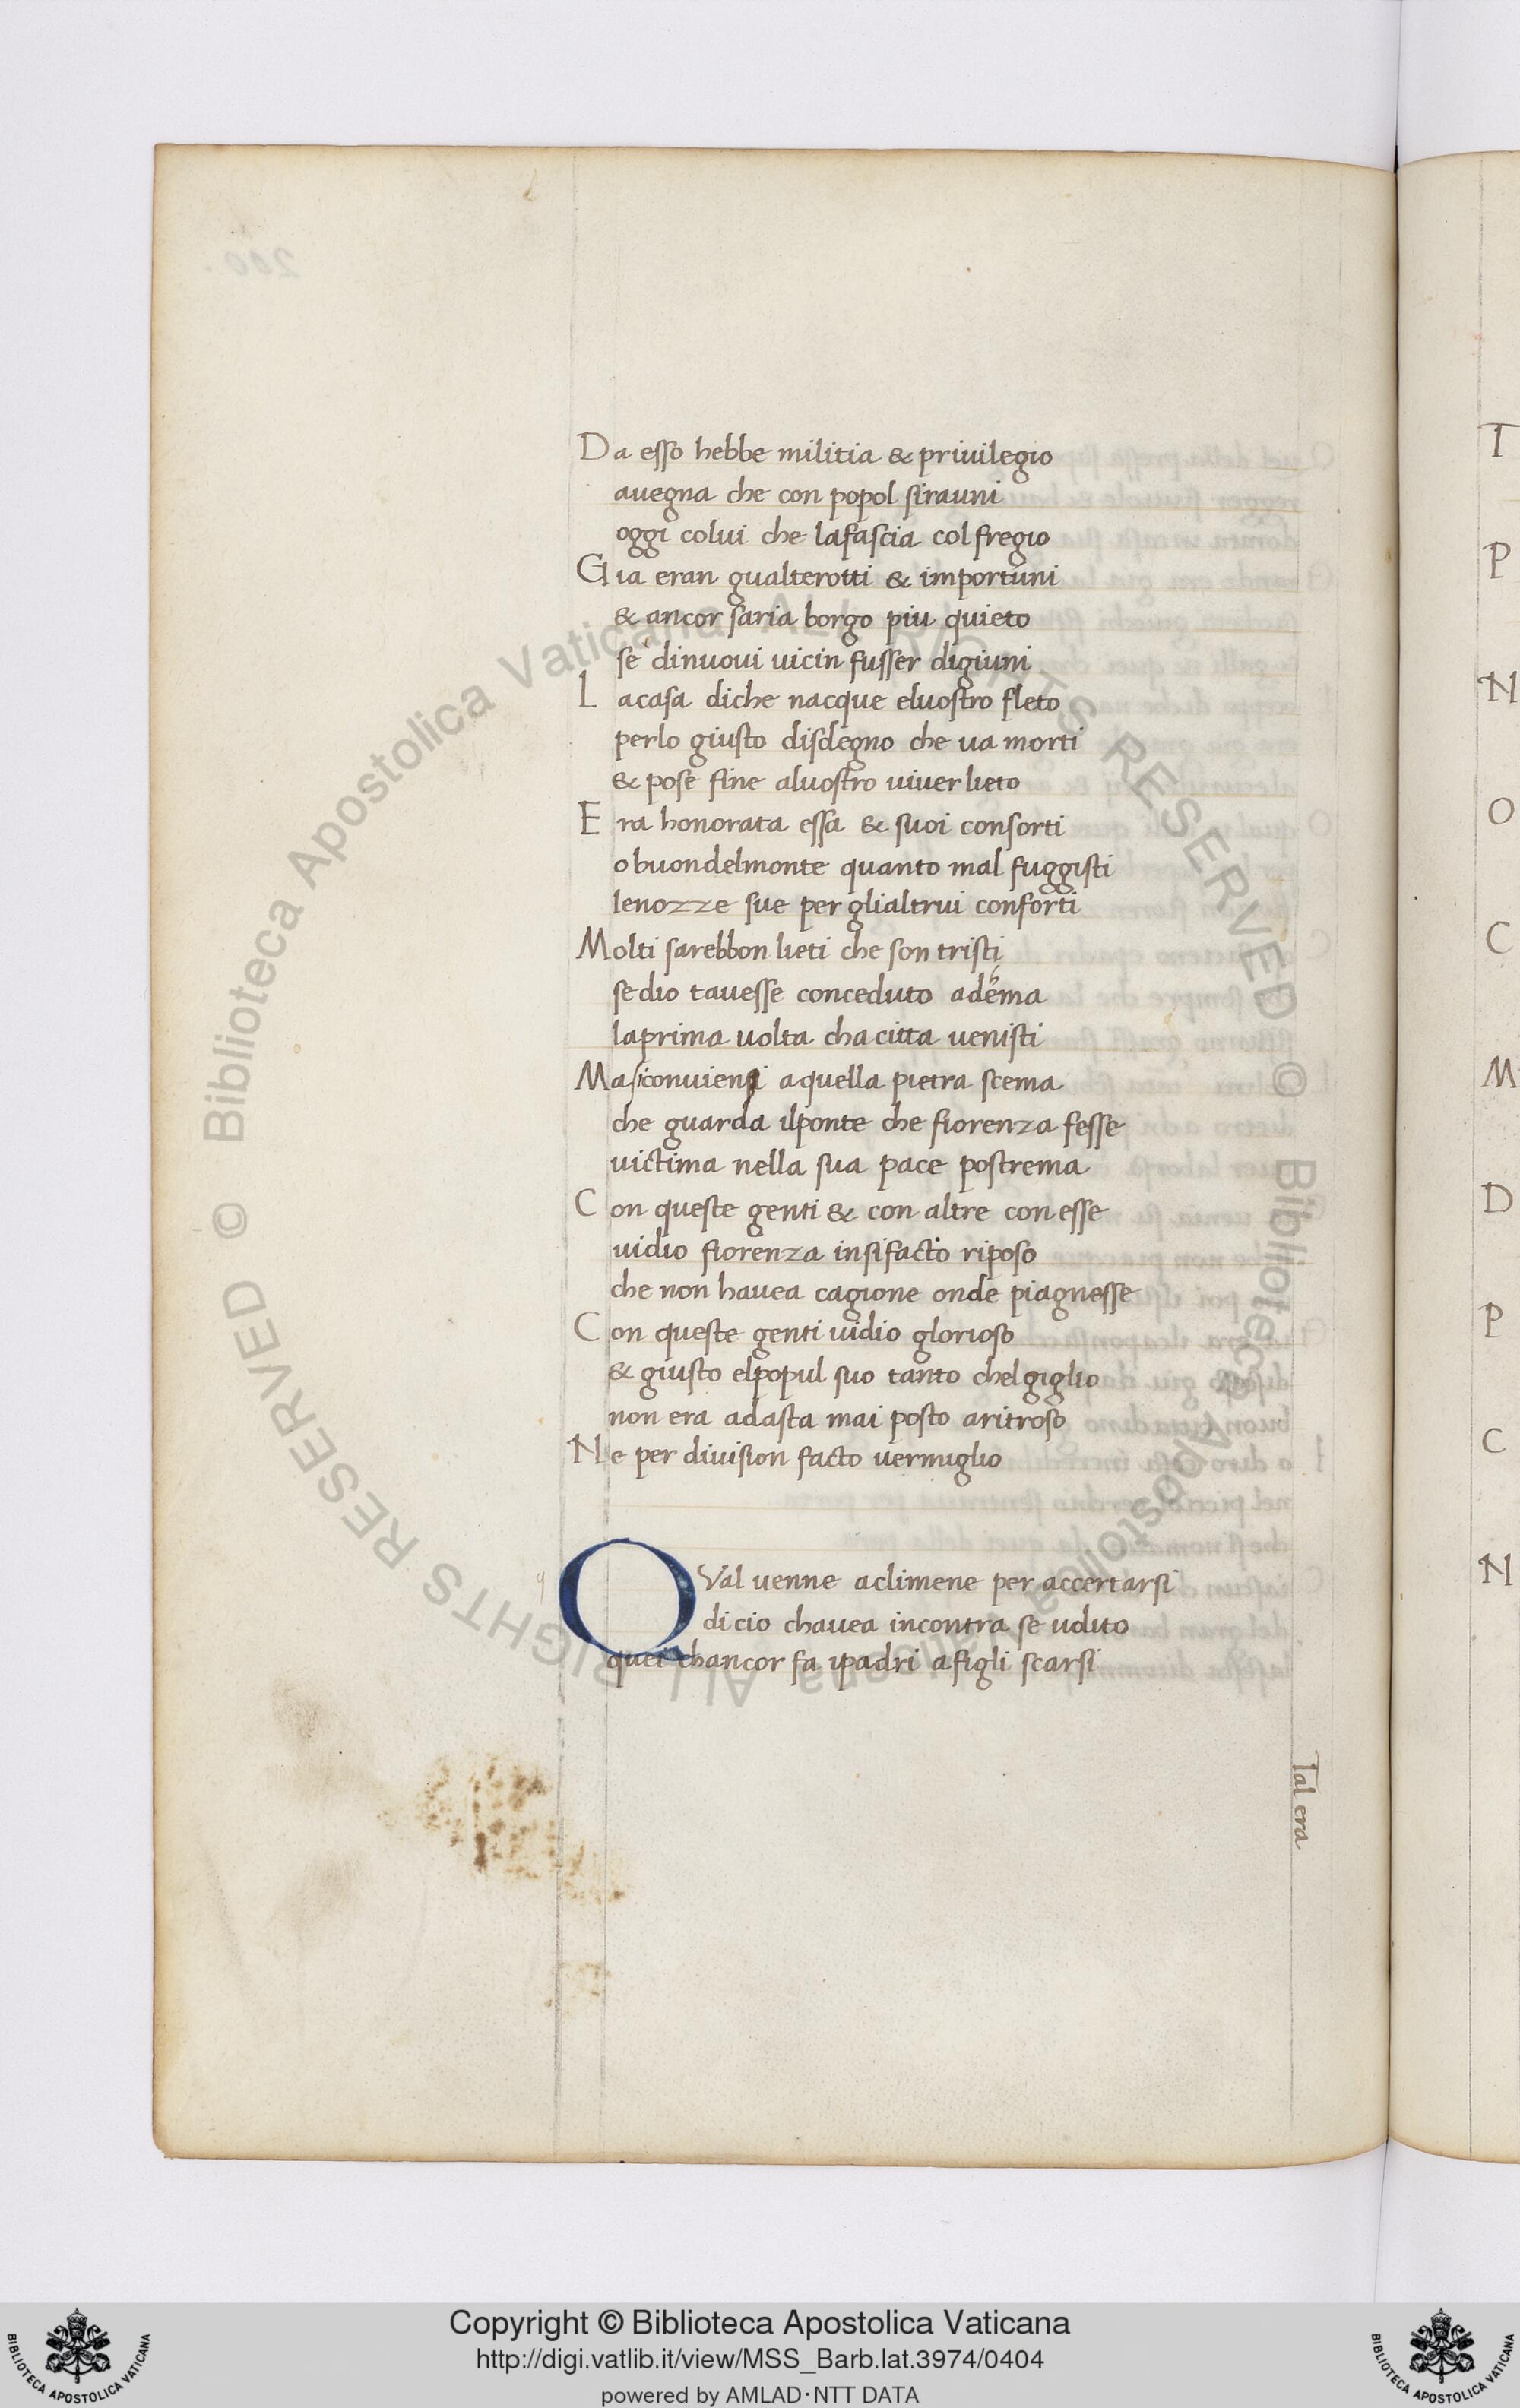 Da esso hebbe militia & priuilegio
auegna che con popol sirauni
oggi colui che lafascia col fregio
Gia eran gualterotti & importuni
& ancor saria borgo piu quieto
se dinuoui uicin fusser digiuni
La casa diche nacque eluostro fleto
perlo giusto disdegno che ua morti
& pose fine aluostro uiuer lieto
Era honorata essa & suoi consorti
o buondelmonte quanto mal fuggisti
lenozze sue per glialtrui conforti
Molti sarebbon lieti che son tristi
sedio tauesse conceduto adema
laprima uolta cha citta uenisti
Ma siconuiensi aquella pietra scema
che guarda ilponte che fiorenza fesse
uictima nella sua pace postrema
Con queste genti & con altre con esse
uidio fiorenza insifacto riposo
che non hauea cagione onde piagnesse
Con queste genti uidio glorioso
& giusto elpopul suo tanto chelgiglio
non era adasta mai posto aritroso
Ne per diuision facto uermiglio
QVal uenne aclimene per accertarsi
di cio chauea incontra se udito
quei chancor fa ipadri afigli scarsi
Tal era
200
T
P
N
O
C
M
D
P
C
N
© Biblioteca Apostolica Vaticana ALL RIGHTS RESERVED © Biblioteca Apostolica Vaticana ALL RIGHTS RESERVED
Copyright © Biblioteca Apostolica Vaticana
http://digi.vatlib.it/view/MSS_Barb.lat.3974/0404
powered by AMLAD·NTT DATA
BIBLIOTECA APOSTOLICA VATICANA
BIBLIOTECA APOSTOLICA VATICANA